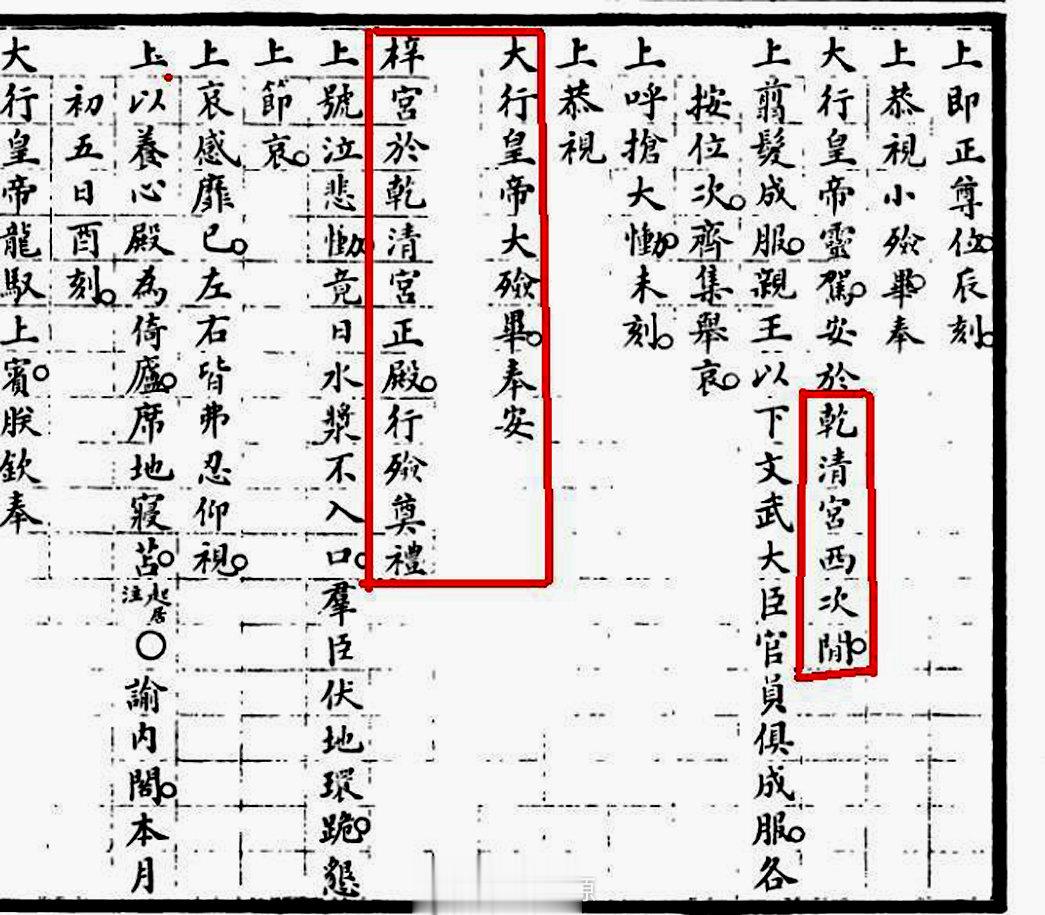 上即正尊位。辰刻。
上恭視小殮畢。奉
大行皇帝靈駕。安於乾清宮西次間。
上翦髮成服。親王以下文武大臣官員俱成服。各
按位次。齊集舉哀。
上呼搶大慟。未刻。
上恭視
大行皇帝大殮畢。奉安
梓宮於乾清宮正殿。行殮奠禮
上號泣悲慟。竟日水漿不入口。羣臣伏地環跪。懇
上節哀。
上哀感靡已。左右皆弗忍仰視。
上以養心殿為倚廬。席地寢苫。起居注○諭內閣。本月
初五日酉刻。
大行皇帝龍馭上賓。朕欽奉